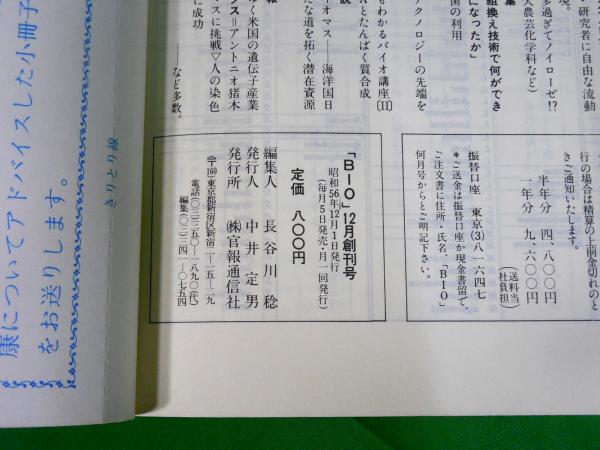 研究者に自由な流動
現。
多過ぎてノイローゼ!?
大農芸化学科など)
集
組換え技術で何ができ
になったか」
国の利用
テクノロジーの先端を
もわかるバイオ講座〔11〕
Aとたんぱく質合成
説
オマス――海洋国日
たな道を拓く潜在資源
報
く米国の遺伝子産業
ックス=アントニオ猪木
スに挑戦▽人の染色
に成功
――など多数。
行の場合は精算の上前金切れのと
きご通知いたします。
半年分 四、八〇〇円
一年分 九、六〇〇円
(送料当社負担)
振替口座 東京(3)八一六四七
*ご送金は振替口座か現金書留で、
ご注文書に住所・氏名、「BIO」
何月号からとご明記下さい。
「BIO」12月創刊号
昭和56年12月1日発行
(毎月5日発売・月一回発行)
定価 八〇〇円
編集人 長谷川 稔
発行人 中井定男
発行所 ㈱官報通信社
(〒160)東京都新宿区新宿一―一五―一九
電話(〇三)三五〇―一八九〇(代)
編集(〇三)三四一―〇七五四
きりとり線
康についてアドバイスした小冊子
をお送りします。